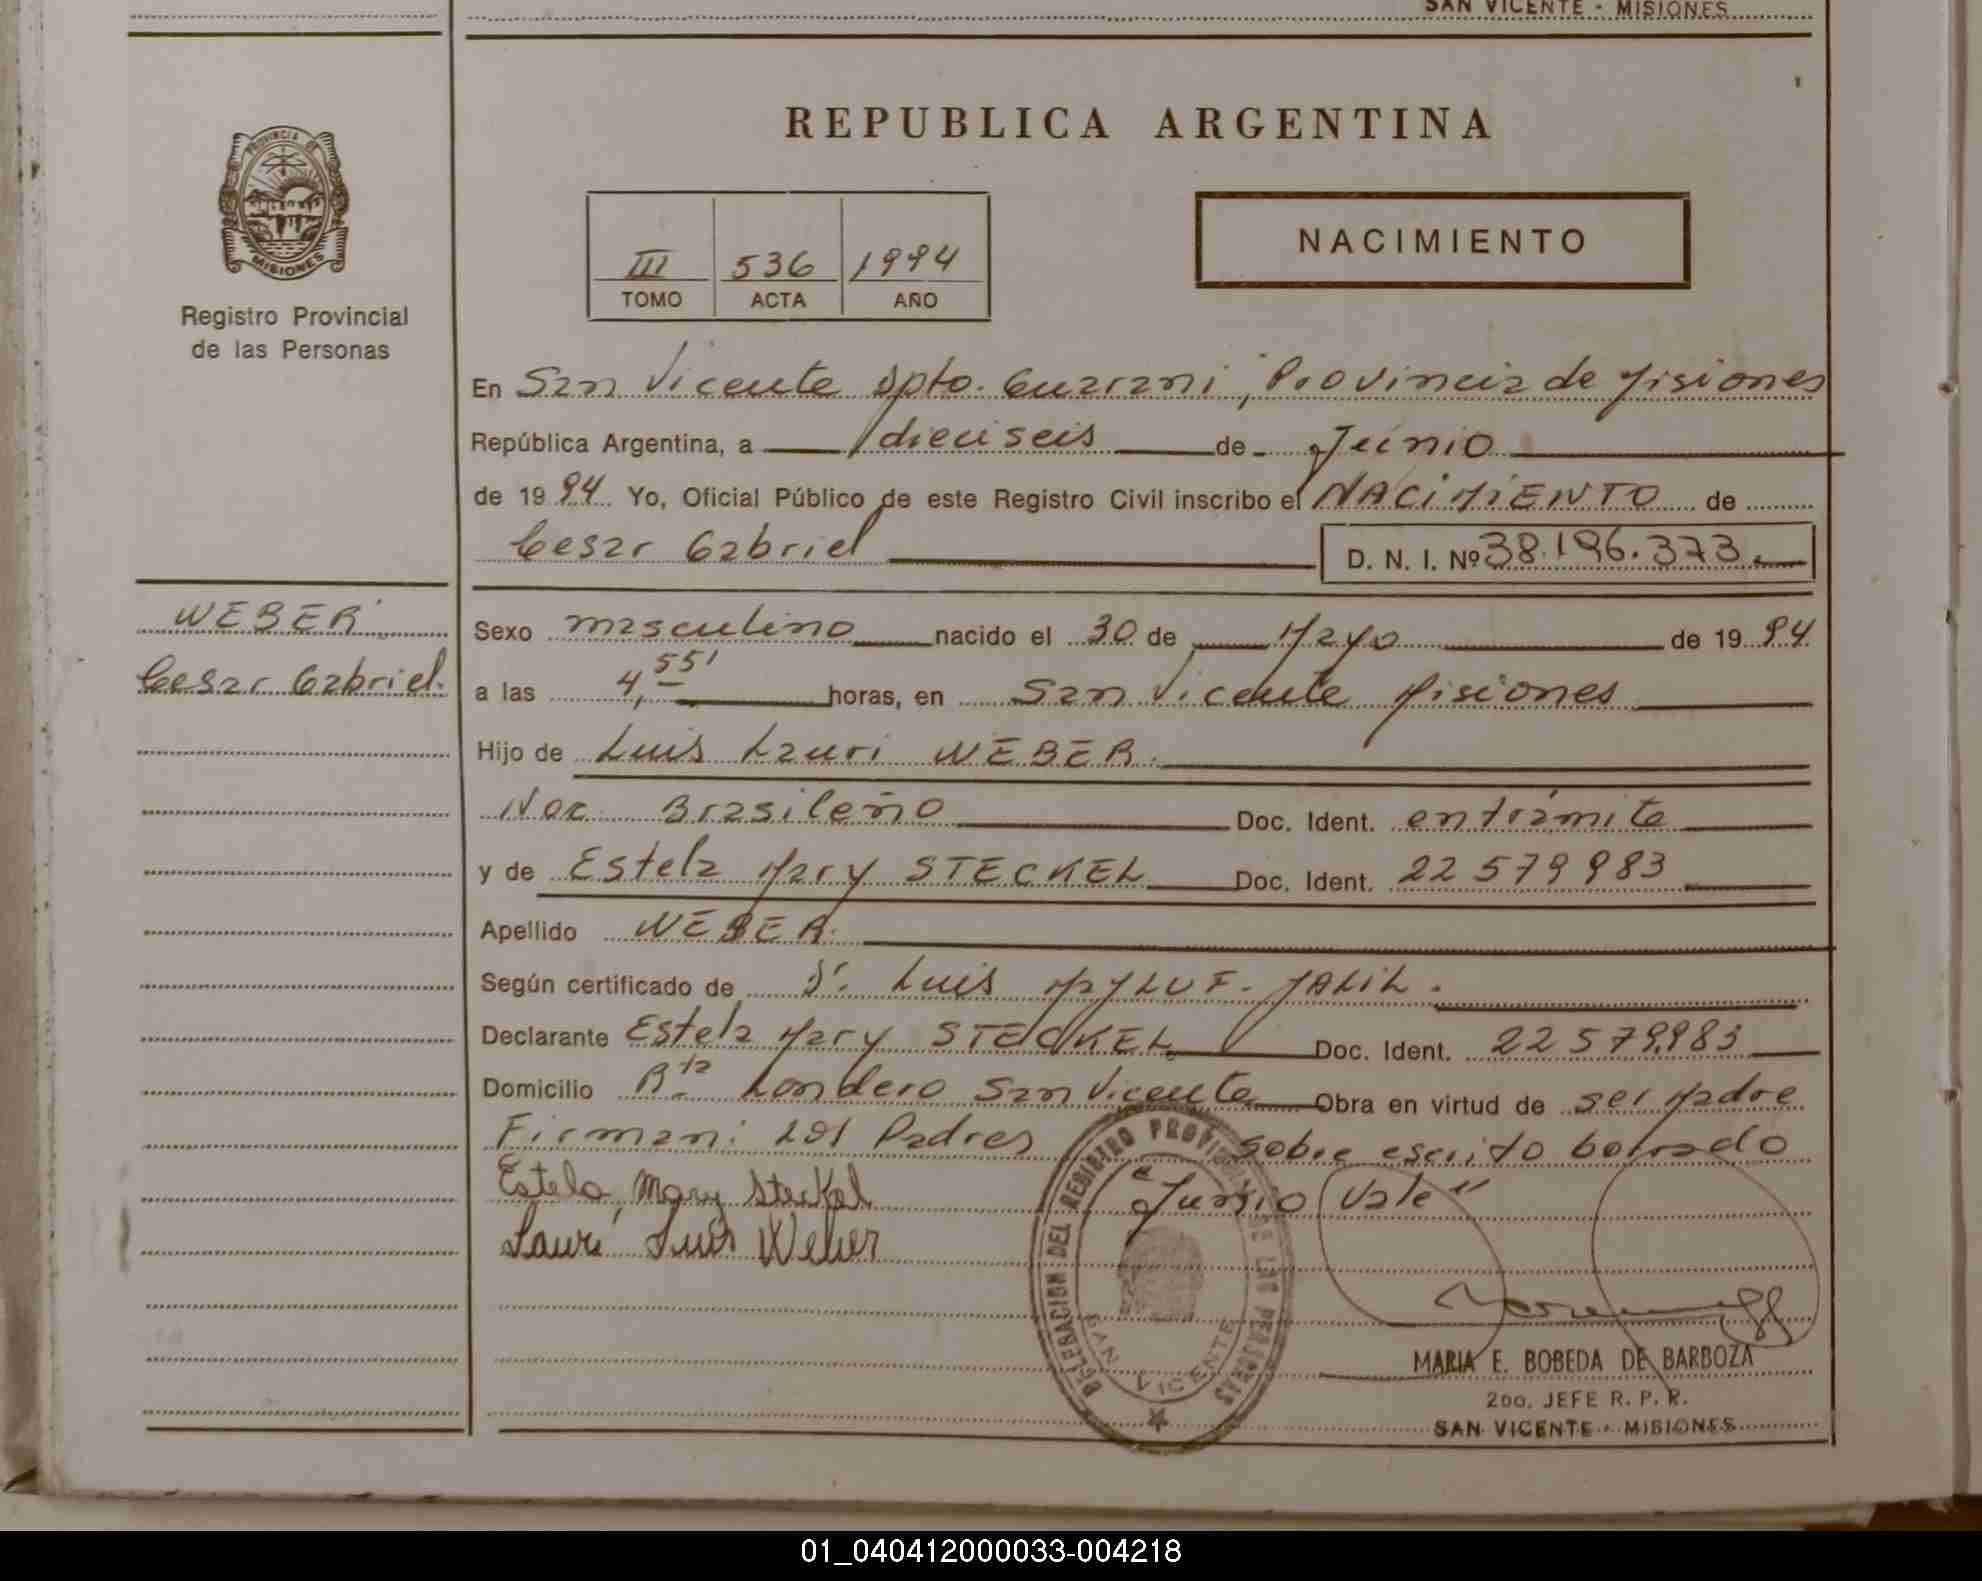 SAN VICENTE - MISIONES
PROVINCIA DE
MISIONES
Registro Provincial
de las Personas
WEBER
Cesar Gabriel.
REPUBLICA ARGENTINA
III 536 1994
TOMO ACTA AÑO
NACIMIENTO
En San Vicente Dpto. Guarani, Provincia de Misiones
República Argentina, a dieciseis de Junio
de 1994 Yo, Oficial Público de este Registro Civil inscribo el NACIMIENTO de
Cesar Gabriel D. N. I. Nº 38.196.373.
Sexo masculino nacido el 30 de Mayo de 1994
a las 4,55' horas, en San Vicente Misiones
Hijo de Luis Lauri WEBER.
Nac. Brasileño Doc. Ident. en trámite
y de Estela Mary STECKEL Doc. Ident. 22 579 983
Apellido WEBER.
Según certificado de Dr. Luis JALIL.
Declarante Estela Mary STECKEL Doc. Ident. 22 579.983
Domicilio Londero San Vicente Obra en virtud de ser Madre
Firman: los Padres sobre escrito borrado
Estela Mary Steckel "Junio Vale"
Lauri Luis Weber
DELEGACION DEL REGISTRO PROVINCIAL DE LAS PERSONAS
SAN VICENTE
MARIA E. BOBEDA DE BARBOZA
2do. JEFE R. P. R.
SAN VICENTE - MISIONES
01_040412000033-004218